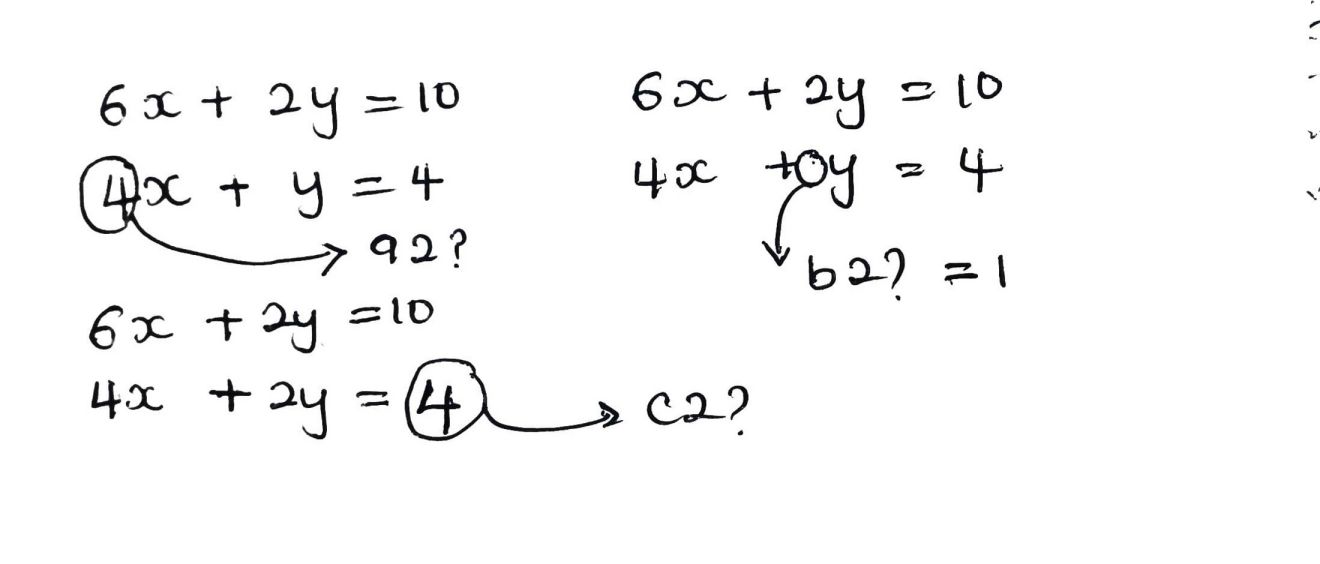 6x + 2y = 10
4x + y = 4
a2?
6x + 2y = 10
4x + 2y = 4
c2?
6x + 2y = 10
4x + 0y = 4
b2? = 1